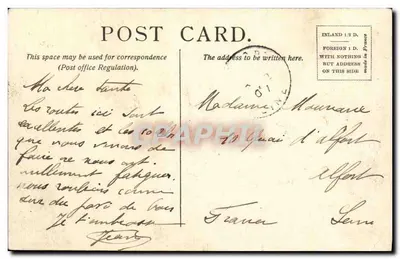 POST CARD.
This space may be used for correspondence
(Post office Regulation).
The address to be written here.
INLAND 1/2 D.
FOREIGN 1 D.
WITH NOTHING
BUT ADDRESS
ON THIS SIDE
made in France
Ma chère
Les routes ici sont
excellentes et les
que nous venons de
faire ne nous ont
nullement fatigués
nous roulions comme
sur du
Je t'embrasse
Jean
Madame
quai d'Alfort
Alfort
France Seine
CARTEPOSTALE